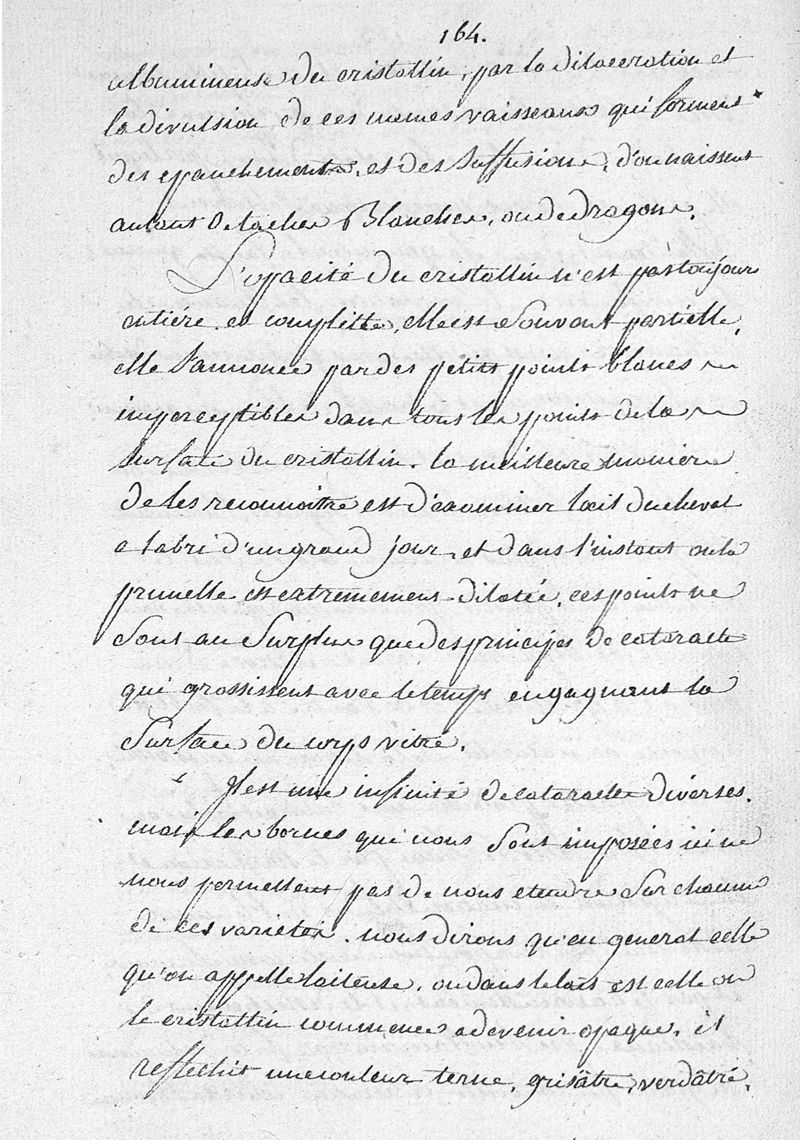 164.
albumineuse du cristallin, par la dilaceration et
la divulsion de ces memes vaisseaux qui forment
des epanchements, et des suffusions, d'ou naissent
autant de taches Blanches, ou de dragons.
L'opacité du cristallin n'est pas toujours
entiére et complette, elle est souvant partielle,
elle s'annonce par des petits points blancs
imperceptibles dans tous les points de la
surface du cristallin. la meilleure maniere
de les reconnoitre est d'éxaminer l'œil du cheval
a l'abri d'un grand jour, et dans l'instant ou la
prunelle est extremement dilatée, ces points ne
sont au surplus que des principes de cataracte
qui grossissent avec le temps en gagnant la
surface du corps vitré.
Il est une infinité de cataractes diverses.
mais les bornes qui nous sont imposées ici ne
nous permettent pas de nous etendre sur chacune
de ces varietés. nous dirons qu'en general celle
qu'on appelle laiteuse, ou dans le lait est celle ou
le cristallin commence a devenir opaque, il
reflechit une couleur terne, grisâtre, verdâtre,